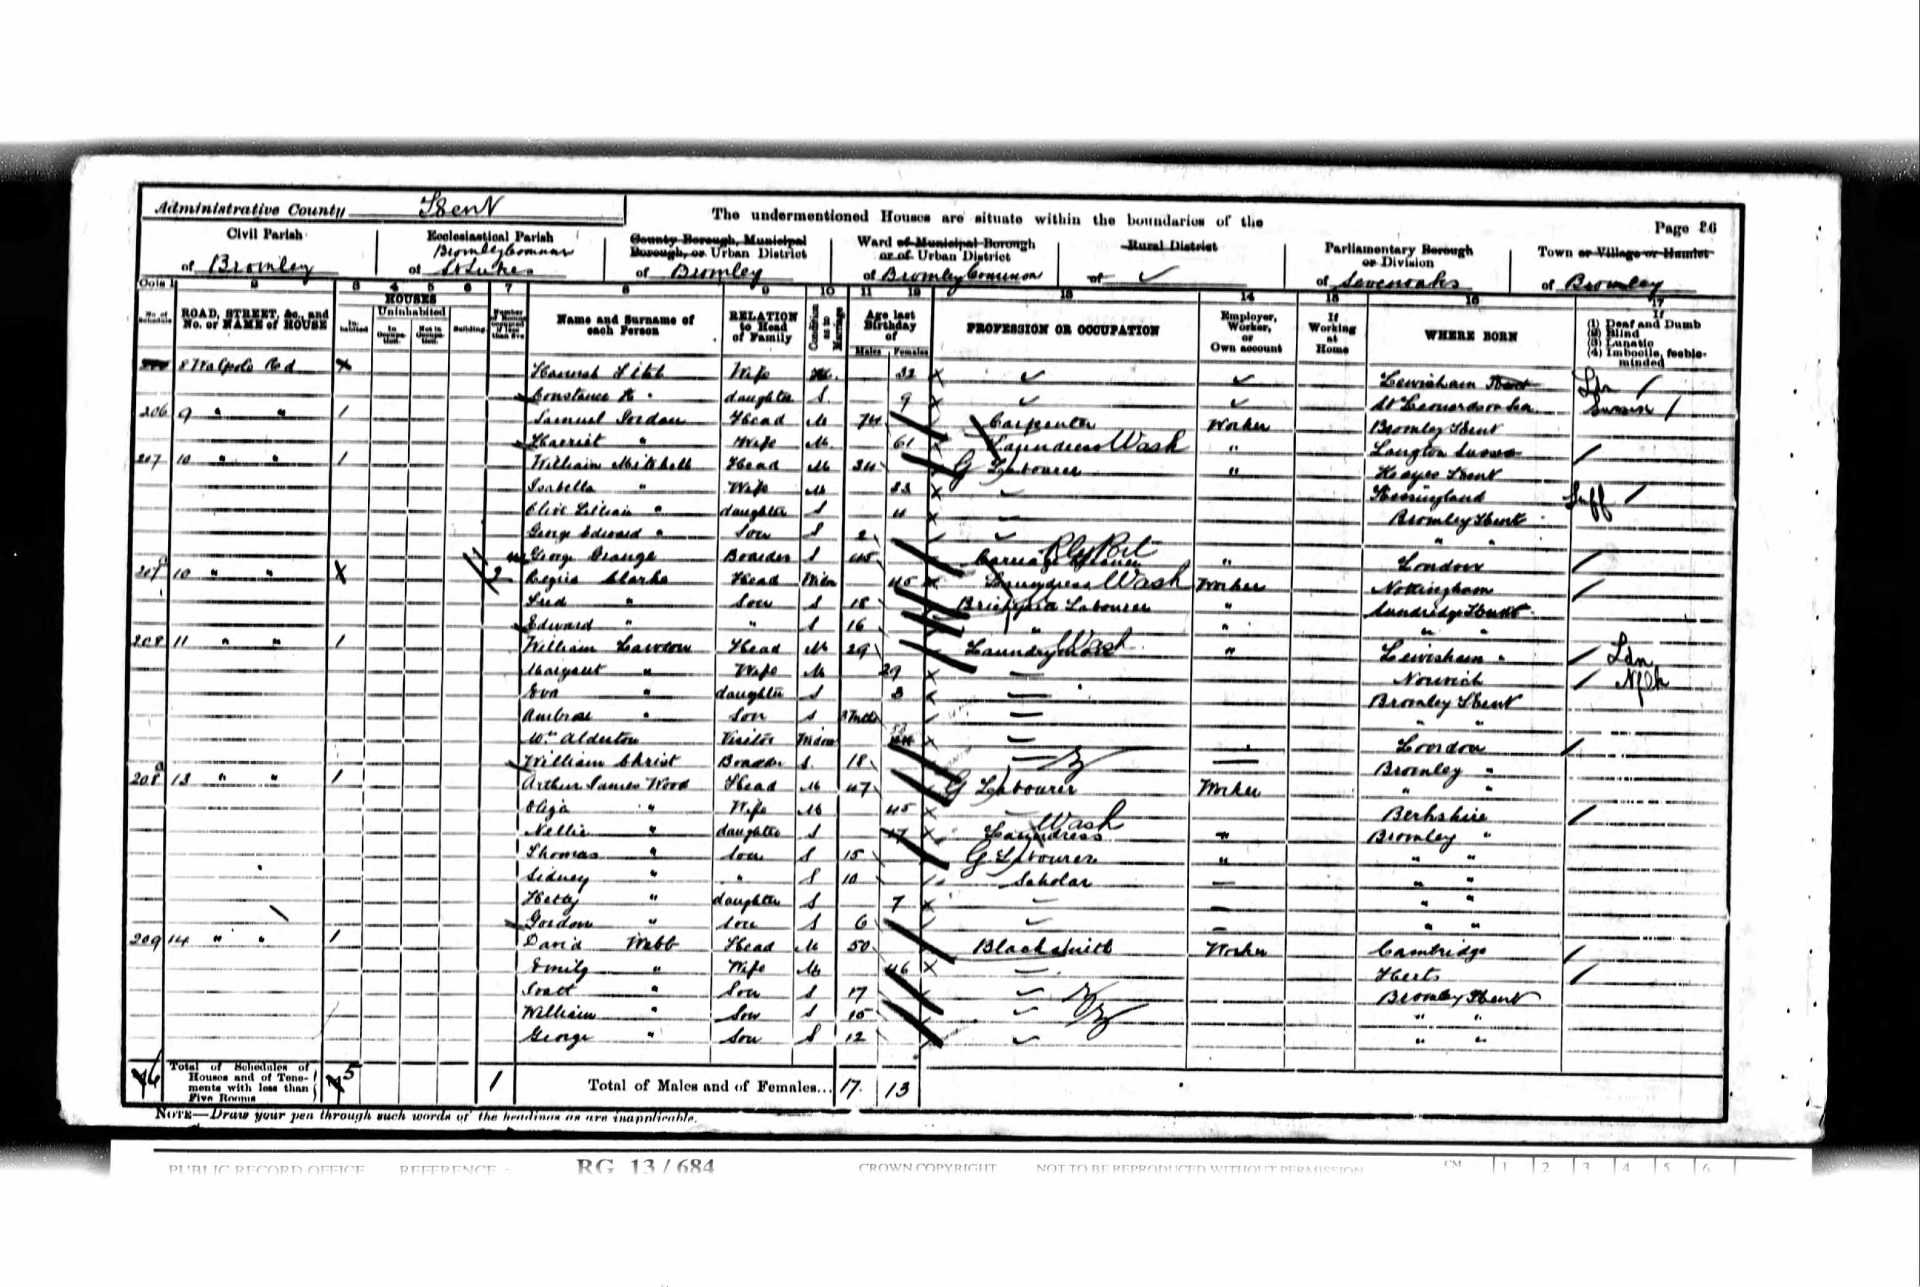 Administrative County Kent
The undermentioned Houses are situate within the boundaries of the
Page 26
Civil Parish
of Bromley
Ecclesiastical Parish
Bromley Common
of St Lukes
County Borough, Municipal
Borough, or Urban District
of Bromley
Ward of Municipal Borough
or of Urban District
of Bromley Common
Rural District
of ✓
Parliamentary Borough
or Division
of Sevenoaks
Town or Village or Hamlet
of Bromley
Cols 1 2 3 4 5 6 7 8 9 10 11 12 13 14 15 16 17
No. of Schedule
ROAD, STREET, &c., and No. or NAME of HOUSE
HOUSES
Inhabited
Uninhabited
In Occupation.
Not in Occupation.
Building.
Name and Surname of each Person
RELATION to Head of Family
Condition as to Marriage
Age last Birthday of
Males Females
PROFESSION OR OCCUPATION
Employer, Worker, or Own account
If Working at Home
WHERE BORN
If
(1) Deaf and Dumb
(2) Blind
(3) Lunatic
(4) Imbecile, feeble-minded
8 Walpole Rd Hannah Wife M. 32 Lewisham Kent Ldn
Constance H " daughter S. 9 St Leonards on Sea Sussex
206 9 " " 1 Samuel Jordan Head M 74 Carpenter Worker Bromley Kent
Harriet " Wife M. 61 Laundress Wash " Langton Sussex
207 10 " " 1 William Mitchell Head M 34 G Labourer " Hayes Kent
Isabella " Wife M 33 Kessingland Suff
Olive Lilian " daughter S 4 Bromley Kent
George Edward " Son S 2 " "
George Grange Boarder S 45 Carriage Cleaner " London
207a 10 " " X 2 Clarke Head Widow 45 Laundress Wash Worker Nottingham
Fred " Son S 18 Brickfield Labourer " Sundridge Kent
Edward " " S 16 " " " "
208 11 " " 1 William Lawson Head M 29 Laundryman Wash " Lewisham " Ldn
Margaret " Wife M 29 Norwich Nflk
Eva " daughter S 3 Bromley Kent
Ambrose " Son S 3 Mths " "
Wm Alderton Visitor Widow London
William Christ Boarder S. 18 Bromley "
208a 13 " " 1 Arthur James Wood Head M 47 G Labourer Worker " "
Eliza " Wife M 45 Berkshire
Nellie " daughter S 17 Laundress Wash " Bromley "
Thomas " Son S 15 G Labourer " " "
Sidney " " S 10 Scholar " "
Hetty " daughter S 7 " "
Gordon " son S 6 " "
209 14 " " 1 David Webb Head M 50 Blacksmith Worker Cambridge
Emily " Wife M 46 Herts
" Son S 17 Bromley Kent
William " Son S 15 " "
George " Son S 12 " "
6 Total of Schedules of Houses and of Tenements with less than Five Rooms 5 1 Total of Males and of Females... 17. 13
NOTE—Draw your pen through such words of the headings as are inapplicable.
PUBLIC RECORD OFFICE REFERENCE :- RG 13/684 CROWN COPYRIGHT NOT TO BE REPRODUCED WITHOUT PERMISSION CM 1 2 3 4 5 6